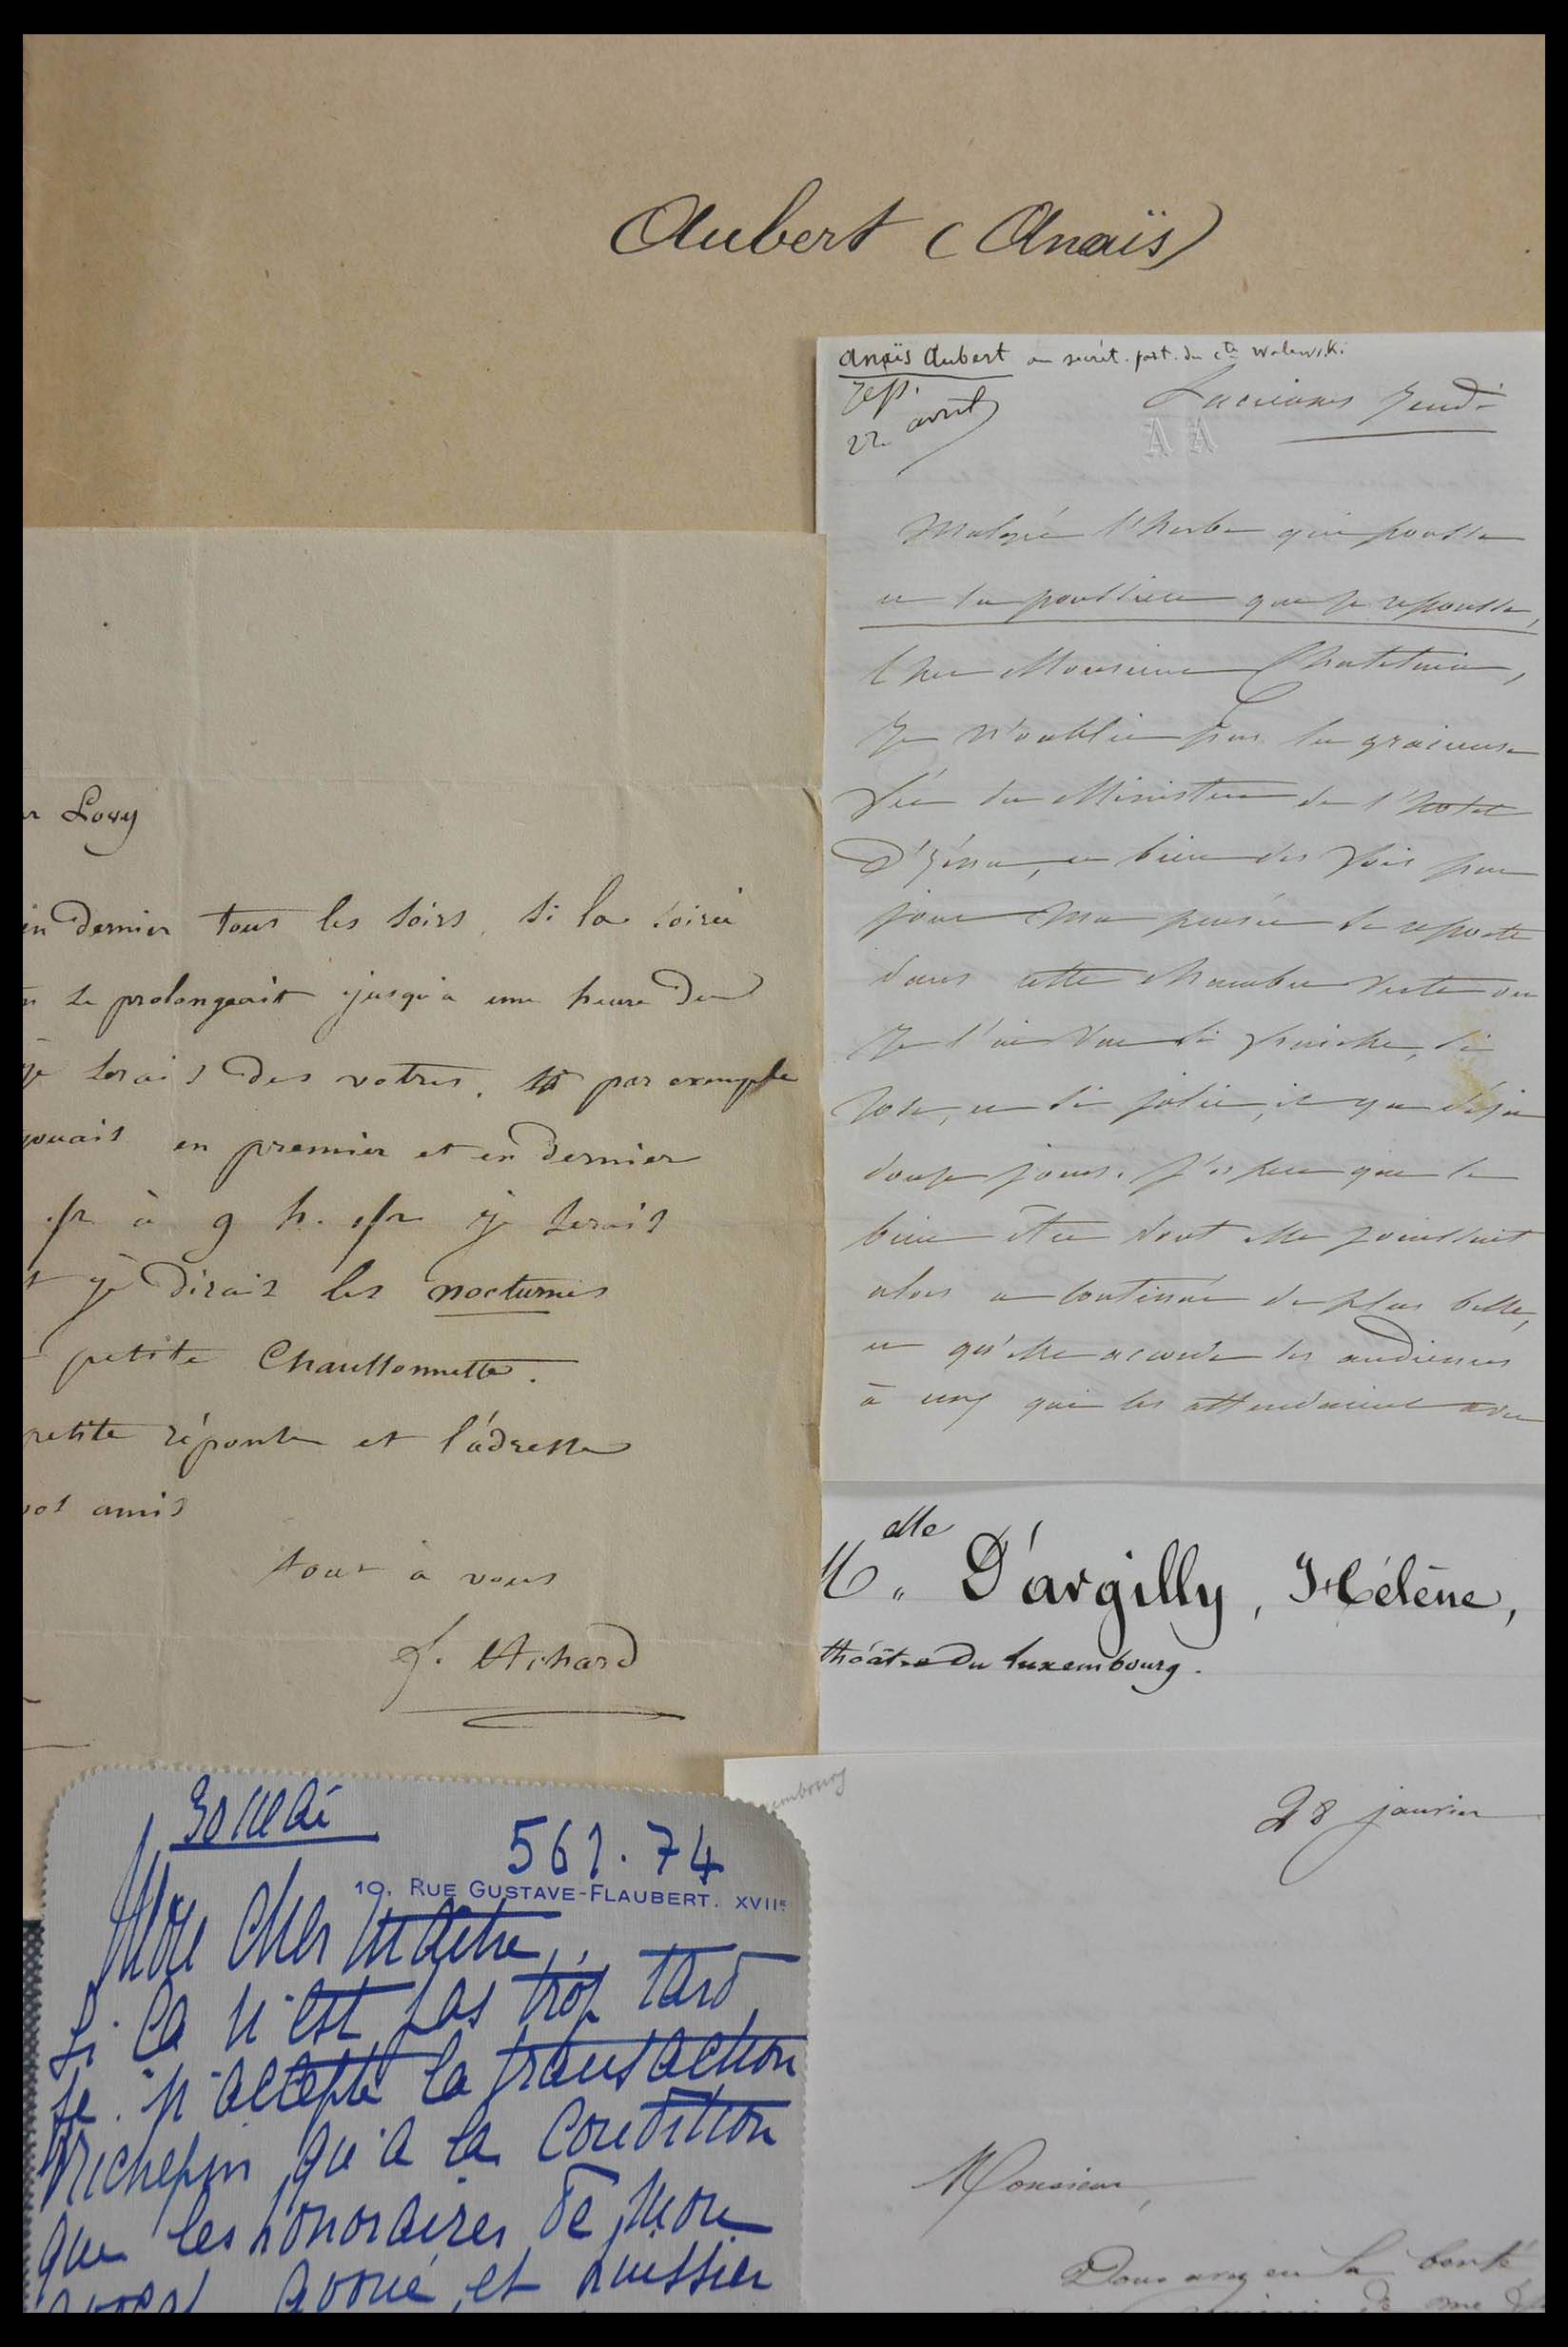 Aubert (Anaïs)
Anaïs Aubert au secrét. part. du cte Walewski
Rép.
22 avril
Jeudi
A A
Malgré l'herbe qui pousse
et la poussière que je repousse,
Cher Monsieur
Je n'oublie pas la gracieuse
fée du Ministère de l'hotel
d'Iéna, et bien des fois par
jour ma pensée se reporte
dans cette chambre verte ou
Je l'ai vue si fraiche, si
rose, et si jolie, il y a déja
douze jours. J'espere que le
bien être dont elle jouissait
alors a continué de plus belle,
et qu'elle accorde les audiences
à ceux qui les attendaient avec
Lovy
en dernier tous les soirs, si la soirée
se prolongeait jusqu'a une heure du
je serais des votres. par exemple
jouais en premier et en dernier
à 9 h. 1/2 je serais
je dirais les nocturnes
petite Chaussonnette.
petite réponse et l'adresse
vos amis
tout à vous
f. Achard
Melle D'argilly, Hélène,
théâtre du Luxembourg.
embourg
28 janvier
Monsieur,
Vous avez eu la bonté
de me
561.74
10, RUE GUSTAVE-FLAUBERT. XVIIE
Mon cher Maître,
Si ça n'est pas trop tard
je n'accepte la transaction
Richepin qu'à la condition
que les honoraires de mon
avocat avoué, et huissier